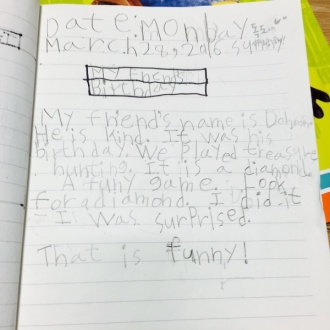 Date: Monday
March 28, 2016 su
My friend's
Birthday
My friend's name is
He is kind. It was his
birthday. We played treasure
hunting. It is a diamond.
A funy game. I look
for a diamond. I did it
I was surprised.
That is funny!